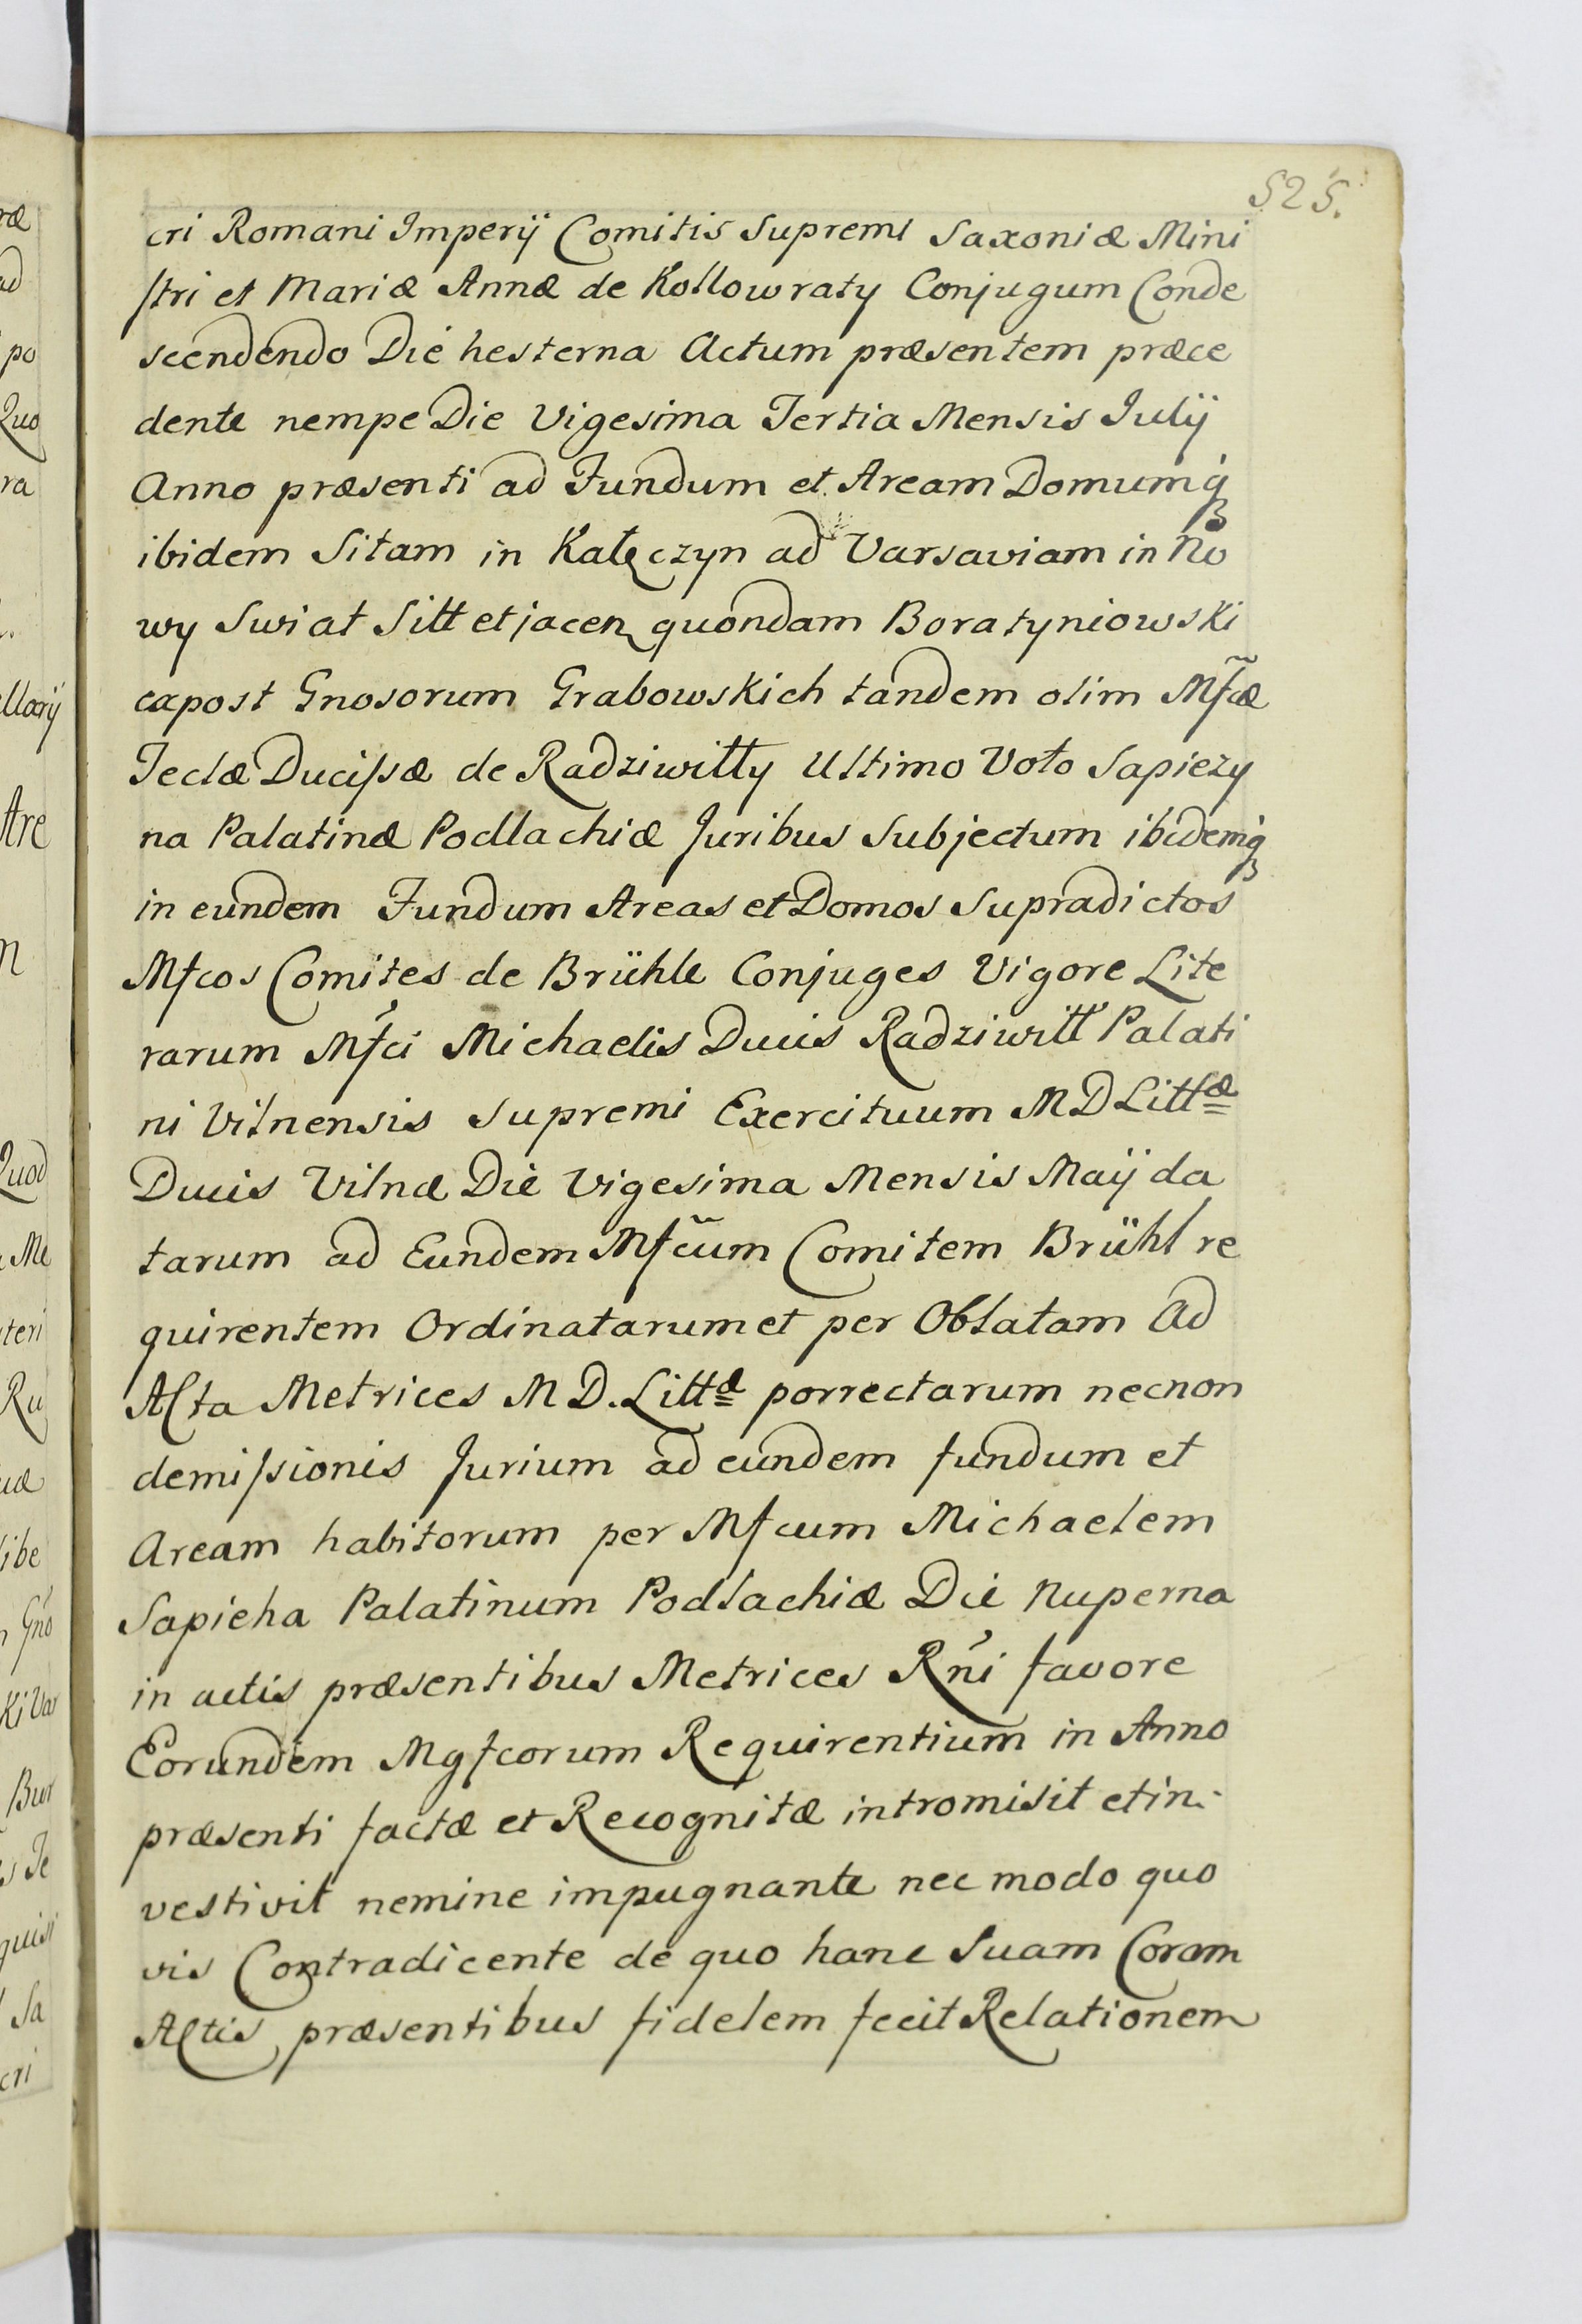 525.
cri Romani Imperÿ Comitis Supremi Saxoniæ Mini
stri et Mariæ Annæ de Kollowraty Conjugum Conde
scendendo Die hesterna Actum præsentem præce
dente nempe Die Vigesima Tertia Mensis Julÿ
Anno præsenti ad Fundum et Aream Domumq́ꝫ
ibidem Sitam in Kałęczyn ad Varsaviam in No
wy Swiat Sitt et jacen quondam Boratyniowski
expost Gnosorum Grabowskich tandem olim Mf̃cæ
Teclæ Ducissæ de Radziwiłły Ultimo Voto Sapiezy
na Palatinæ Podlachiæ Juribus Subjectum ibidemq́ꝫ
in eundem Fundum Areas et Domos Supradictos
Mfcos Comites de Brühle Conjuges Vigore Lite
rarum Mf́ci Michaelis Ducis Radziwiłł Palati
ni Vilnensis Supremi Exercituum M D Littæ
Ducis Vilnæ Die Vigesima Mensis Maÿ da
tarum ad Eundem Mfc̃um Comitem Brühl re
quirentem Ordinatarum et per Oblatam Ad
Acta Metrices M D. Littæ porrectarum necnon
demissionis Jurium ad eundem fundum et
Aream habitorum per Mfcum Michaelem
Sapieha Palatinum Podlachiæ Die nuperna
in actis præsentibus Metrices Rńi favore
Eorundem Mgfcorum Requirentium in Anno
præsenti factæ et Recognitæ intromisit et in-
vestivit nemine impugnante nec modo quo
vis Contradicente de quo hanc Suam Coram
Actis præsentibus fidelem fecit Relationem